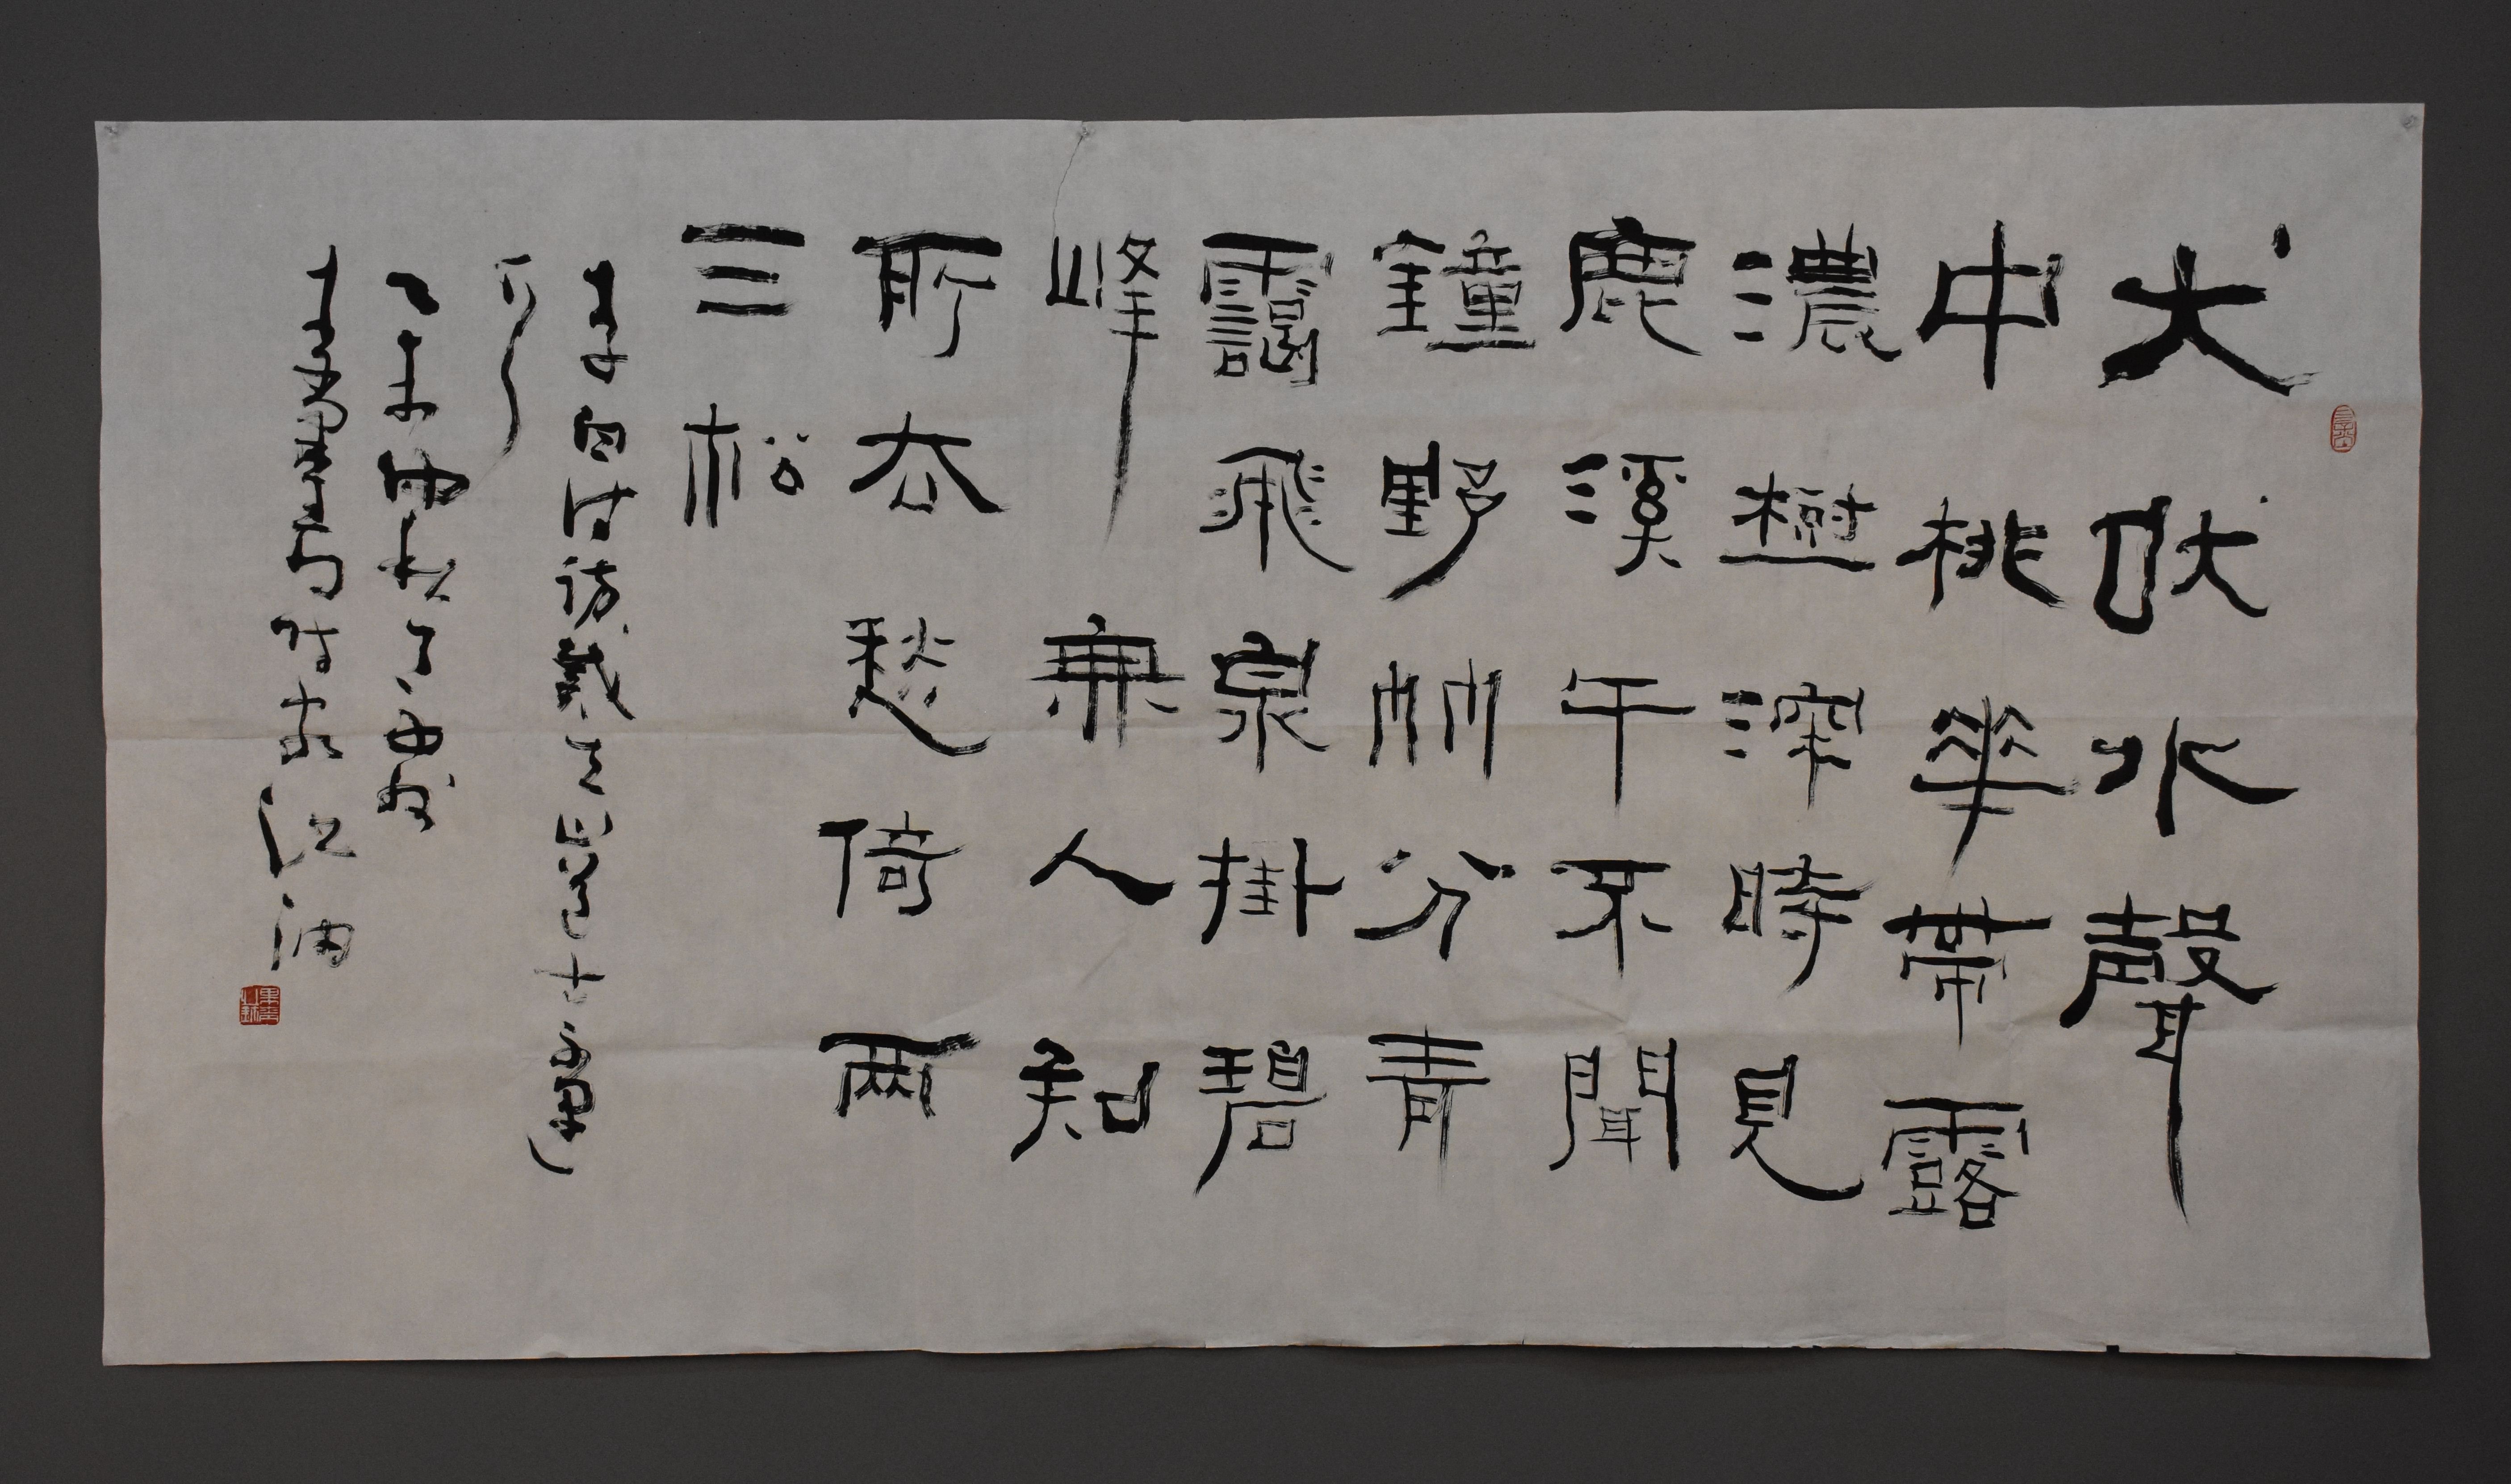 犬吠水聲
中桃華帶露
濃樹深時見
鹿溪午不聞
鐘野竹分青
靄飛泉掛碧
峰無人知
所去愁倚兩
三松
李白詩訪戴天山道士不遇
乙未
江油